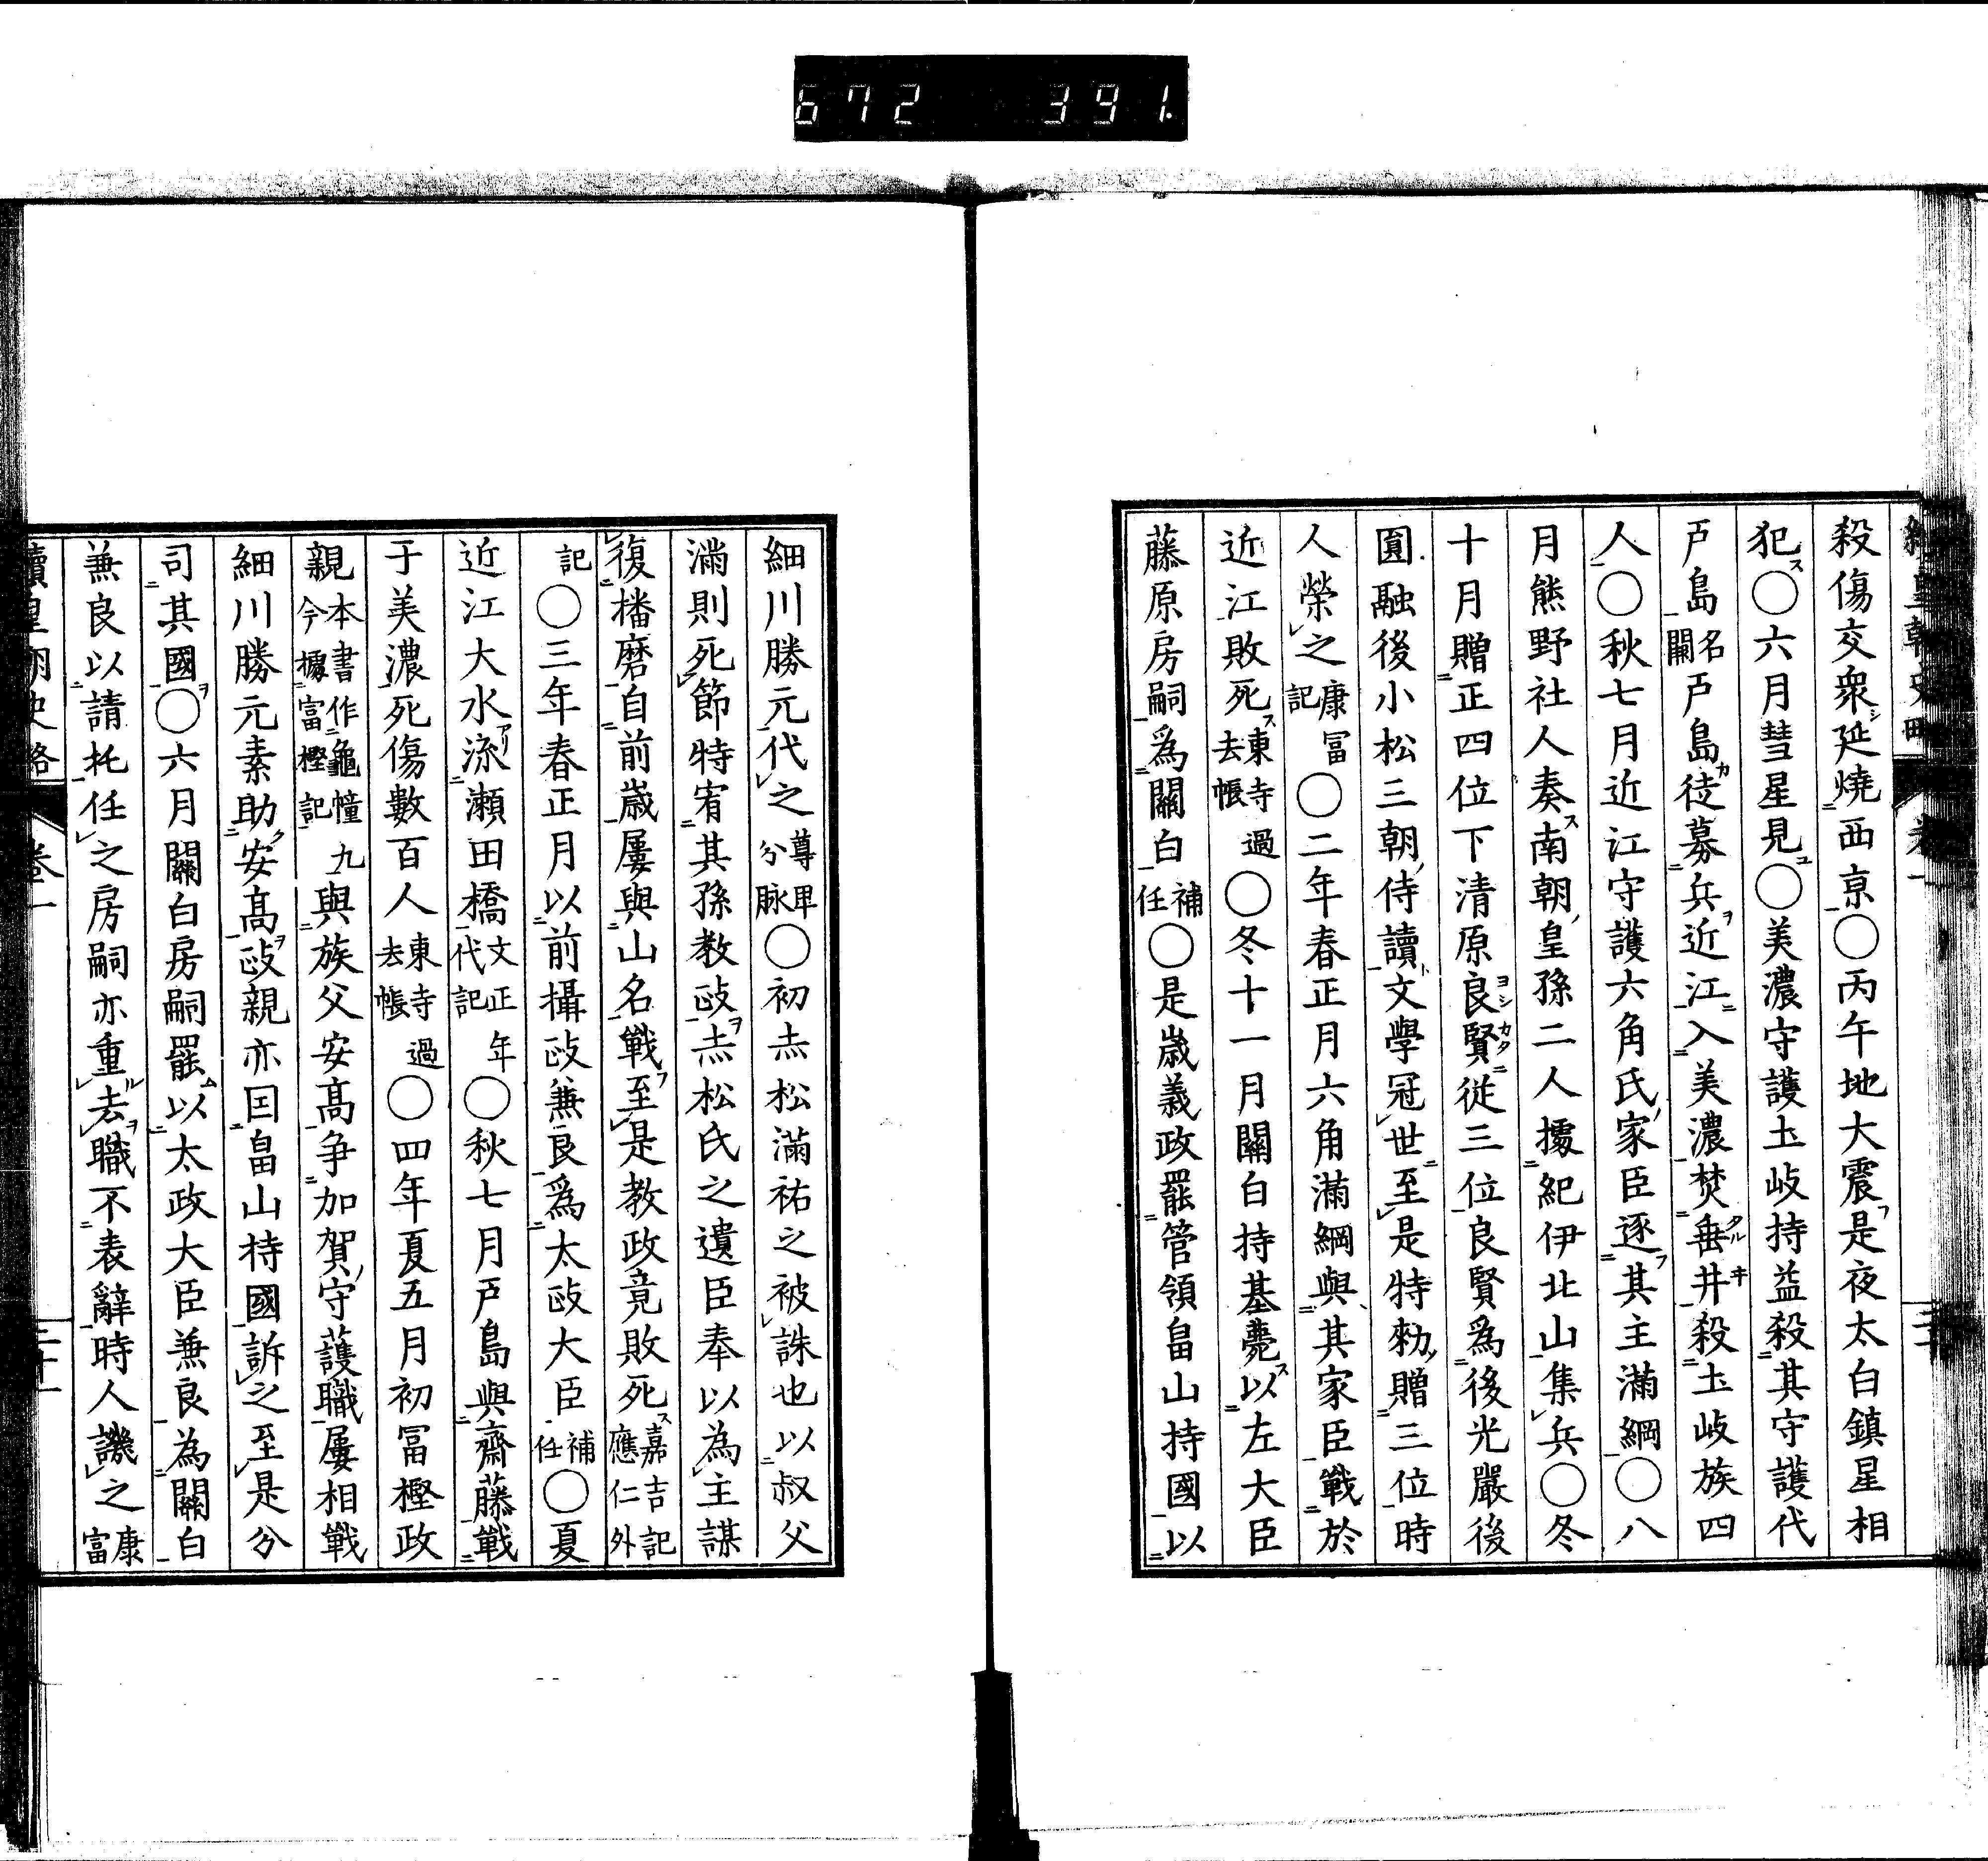 672 391.
殺傷交衆延燒西京○丙午地大震是夜太白鎮星相
犯○六月彗星見○美濃守護土岐持益殺其守護代
戸島名闕戸島徒募兵近江入美濃焚垂井殺土岐族四
人○秋七月近江守護六角氏家臣逐其主滿綱○八
月熊野社人奏南朝皇孫二人據紀伊北山集兵○冬
十月贈正四位下清原良賢從三位良賢爲後光嚴後
圓融後小松三朝侍讀文學冠世至是特勑贈三位時
人榮之康冨記○二年春正月六角滿綱與其家臣戰於
近江敗死東寺過去帳○冬十一月關白持基薨以左大臣
藤原房嗣爲關白補任○是歳義政罷管領畠山持國以
細川勝元代之尊卑分脉○初赤松滿祐之被誅也以叔父
滿則死節特宥其孫教政赤松氏之遺臣奉以為主謀
復播磨自前歳屢與山名戰至是教政竟敗死嘉吉記應仁外
記○三年春正月以前攝政兼良爲太政大臣補任○夏
近江大水流瀬田橋文正年代記○秋七月戸島與齋藤戰
于美濃死傷數百人東寺過去帳○四年夏五月初冨樫政
親本書作龜幢九今據富樫記與族父安高争加賀守護職屢相戰
細川勝元素助安高政親亦因畠山持國訴之至是分
司其國○六月關白房嗣罷以太政大臣兼良為關白
兼良以請托任之房嗣亦重去職不表辭時人譏之康富
續皇朝史略 卷一